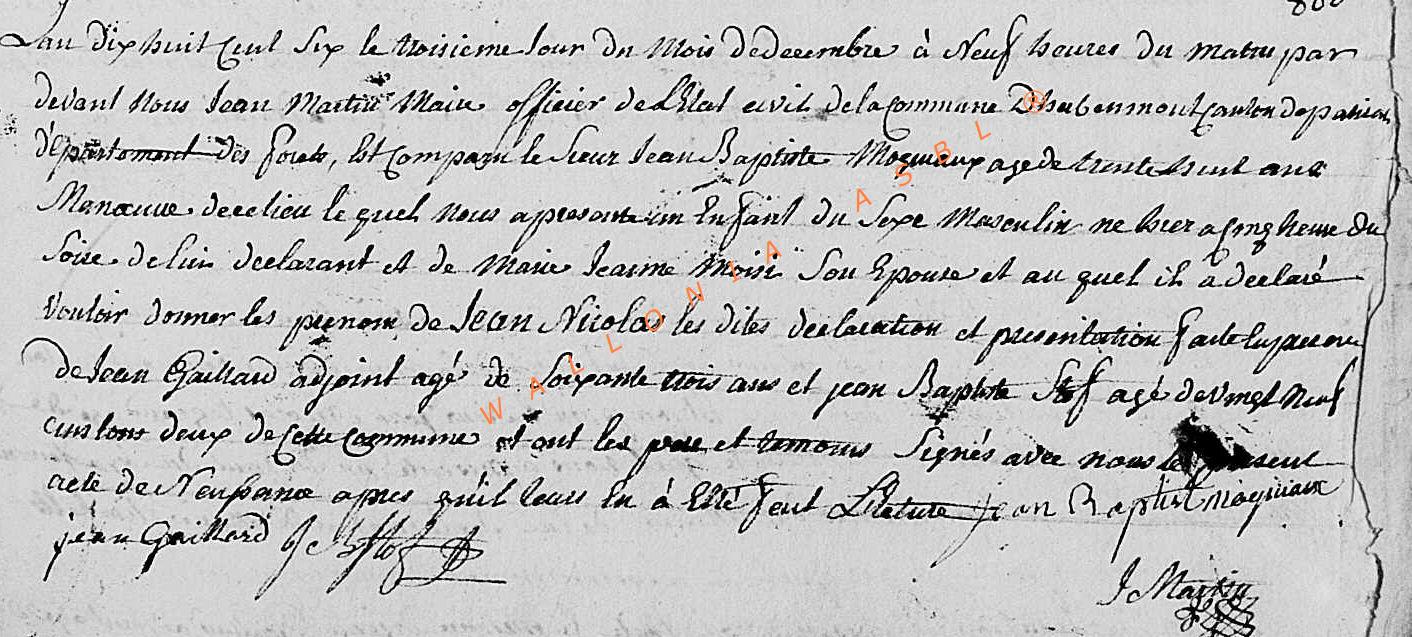 Lan dix huit cent Six le troisieme Jour du Mois de decembre à Neuf heures du matin par
devant Nous Jean Martin Maire officier de L'Etat civil de la commune D'herbeumont canton de
département des forets, Est comparu le Sieur Jean Baptiste Magniaux age de trente huit ans
Manœuvre de ce lieu le quel Nous a presente un Enfant du Sexe Masculin ne hier a cinq heure du
Soire de lui declarant et de Marie Jeanne Moisi Son Epouse et au quel il à declaré
vouloir donner les prenom de Jean Nicolas les dites declaration et presentation faite
de Jean Gaillard adjoint agé de Soixante trois ans et jean Baptiste Stof agé de vingt Neuf
ans tous deux de cette commune et ont les pere et temoins Signés avec nous le present
acte de Neussance apres qu'il leurs En à Etté feut Lecture jean Baptist magniaux
jean Gaillard J B Stof
J Martin
WALLONIA ASBL ®